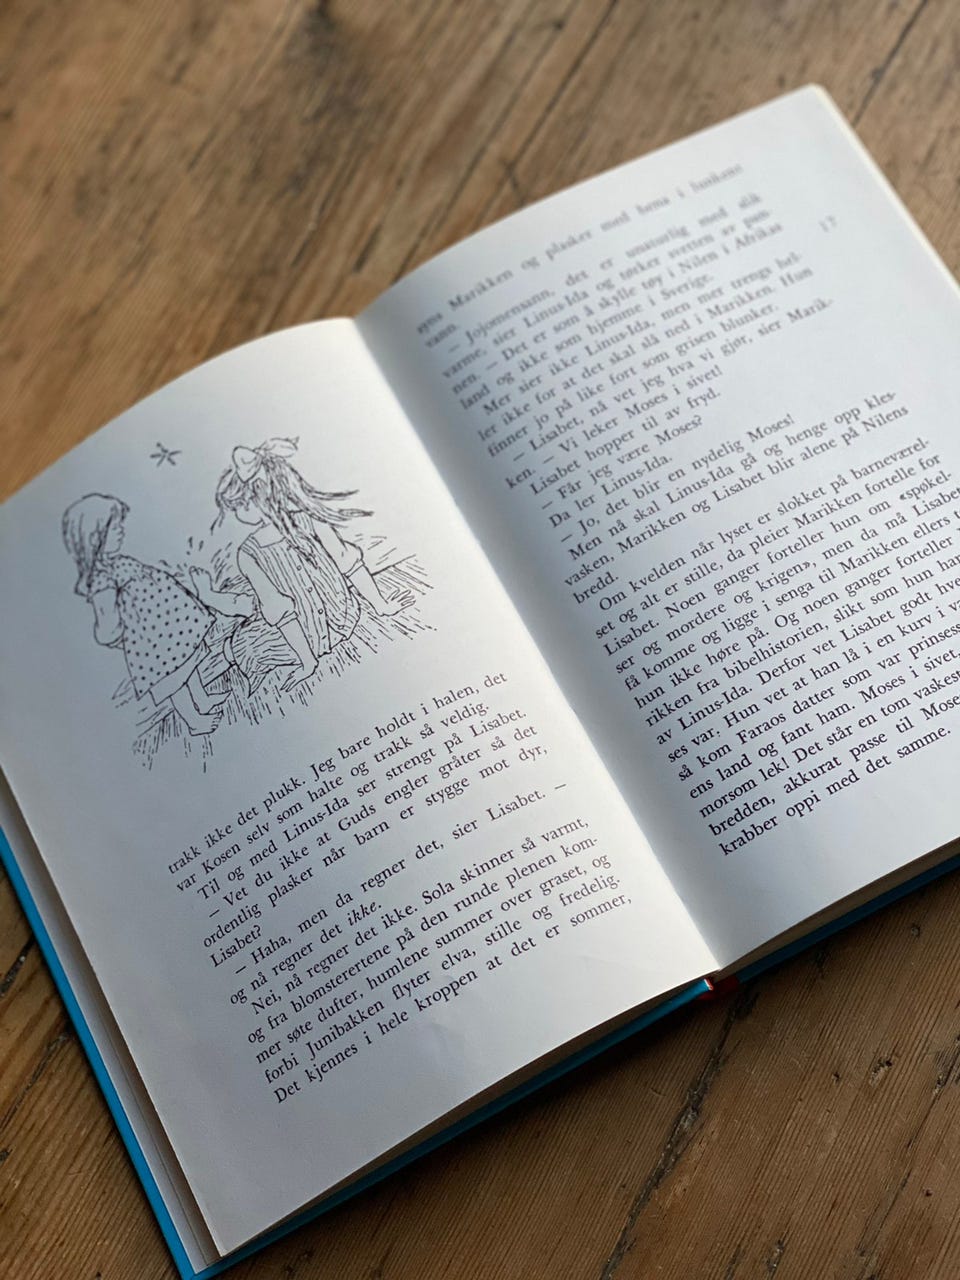 trakk ikke det plukk. Jeg bare holdt i halen, det
var Kosen selv som halte og trakk så veldig.
Til og med Linus-Ida ser strengt på Lisabet.
— Vet du ikke at Guds engler gråter så det
ordentlig plasker når barn er stygge mot dyr,
Lisabet?
— Haha, men da regner det, sier Lisabet. —
og nå regner det ikke.
Nei, nå regner det ikke. Sola skinner så varmt,
og fra blomsterertene på den runde plenen kom-
mer søte dufter, humlene summer over graset, og
forbi Junibakken flyter elva, stille og fredelig.
Det kjennes i hele kroppen at det er sommer,
syns Marikken og plasker med bena i Junibakk
vann.
— Jojomensann, det er unaturlig med slik
varme, sier Linus-Ida og tørker svetten av pan-
nen. — Det er som å skylle tøy i Nilen i Afrikas
land og ikke som hjemme i Sverige.
Mer sier ikke Linus-Ida, men mer trengs hel-
ler ikke for at det skal slå ned i Marikken. Hun
finner jo på like fort som grisen blunker.
— Lisabet, nå vet jeg hva vi gjør, sier Marik-
ken. — Vi leker Moses i sivet!
Lisabet hopper til av fryd.
— Får jeg være Moses?
Da ler Linus-Ida.
— Jo, det blir en nydelig Moses!
Men nå skal Linus-Ida gå og henge opp kles-
vasken, Marikken og Lisabet blir alene på Nilens
bredd.
Om kvelden når lyset er slokket på barneværel-
set og alt er stille, da pleier Marikken fortelle for
Lisabet. Noen ganger forteller hun om «spøkel-
ser og mordere og krigen», men da må Lisabet
få komme og ligge i senga til Marikken ellers t
hun ikke høre på. Og noen ganger forteller
rikken fra bibelhistorien, slikt som hun har
av Linus-Ida. Derfor vet Lisabet godt hve
ses var. Hun vet at han lå i en kurv i va
så kom Faraos datter som var prinsess
ens land og fant ham. Moses i sivet,
morsom lek! Det står en tom vaskest
bredden, akkurat passe til Mose
krabber oppi med det samme.
17